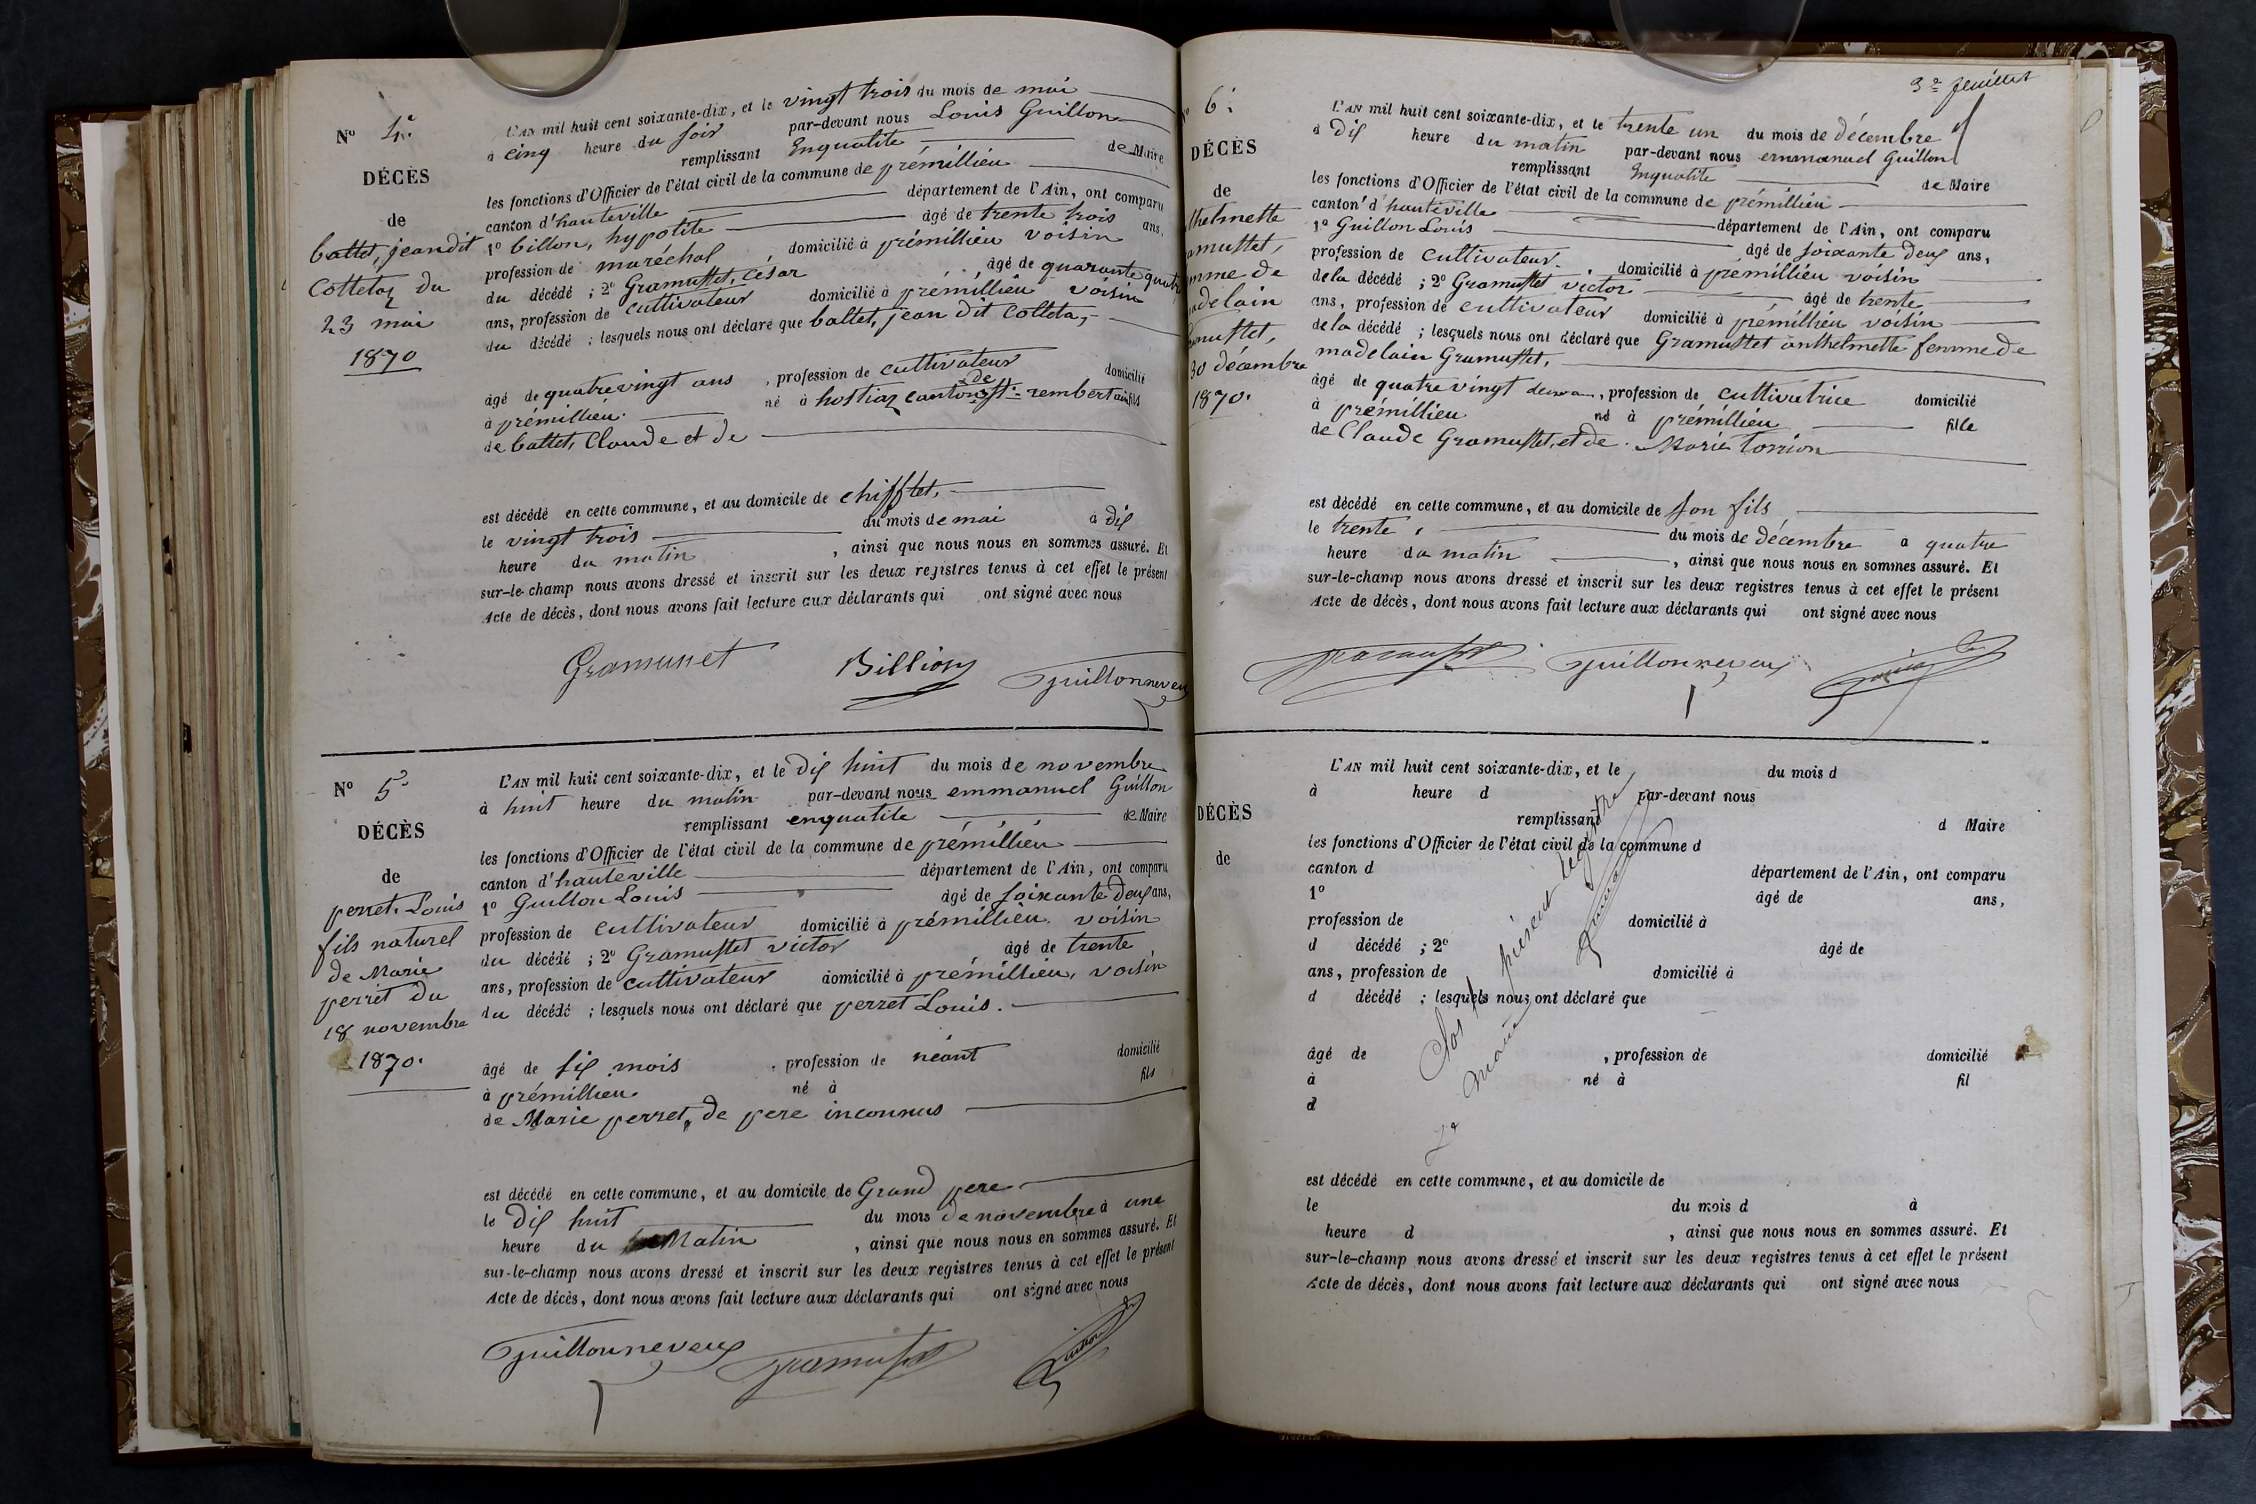 Nº 4e
DÉCÈS
de
battet, jean dit
Cottetaz du
23 mai
1870
L'AN mil huit cent soixante-dix, et le vingt trois du mois de mai
à cinq heure du soir par-devant nous Louis Guillon
remplissant Enqualite de Maire
les fonctions d'Officier de l'état civil de la commune de prémillieu
canton d'hauteville département de l'Ain, ont comparu
1º billon, hypolite âgé de trente trois ans,
profession de maréchal domicilié à prémillieu voisin
du décédé ; 2º Gramusset, César âgé de quarante quatre
ans, profession de cultivateur domicilié à prémillieu voisin
du décédé ; lesquels nous ont déclaré que battet, jean dit Cotteta,
âgé de quatrevingt ans , profession de cultivateur domicilié
à prémillieu. né à hostiaz canton de st. rembert ain fils
de battet, Claude et de
est décédé en cette commune, et au domicile de chifflet,
le vingt trois du mois de mai à dix
heure du matin , ainsi que nous nous en sommes assuré. Et
sur-le-champ nous avons dressé et inscrit sur les deux registres tenus à cet effet le présent
Acte de décès, dont nous avons fait lecture aux déclarants qui ont signé avec nous
Gramusset Billion Guillonneveu
Nº 5e
DÉCÈS
de
perret Louis
fils naturel
de Marie
perret du
18 novembre
1870.
L'AN mil huit cent soixante-dix, et le dix huit du mois de novembre
à huit heure du matin par-devant nous emmanuel Guillon
remplissant enqualite de Maire
les fonctions d'Officier de l'état civil de la commune de prémillieu
canton d'hauteville département de l'Ain, ont comparu
1º Guillon Louis âgé de soixante deux ans,
profession de cultivateur domicilié à prémillieu voisin
du décédé ; 2º Gramusset victor âgé de trente
ans, profession de cultivateur domicilié à prémillieu, voisin
du décédé ; lesquels nous ont déclaré que perret Louis.
âgé de six mois , profession de néant domicilié
à prémillieu né à fils
de Marie perret, de pere inconnus
est décédé en cette commune, et au domicile de Grand pere
le dix huit du mois de novembre à une
heure du Matin , ainsi que nous nous en sommes assuré. Et
sur-le-champ nous avons dressé et inscrit sur les deux registres tenus à cet effet le présent
Acte de décès, dont nous avons fait lecture aux déclarants qui ont signé avec nous
Guillonneveu Gramusset Guillon
3e feuillet
6e
DÉCÈS
de
thelmette
amusset,
mme de
adelain
amusset,
30 décembre
1870.
L'AN mil huit cent soixante-dix, et le trente un du mois de décembre
à dix heure du matin par-devant nous emmanuel Guillon
remplissant Enqualite de Maire
les fonctions d'Officier de l'état civil de la commune de prémillieu
canton d'hauteville département de l'Ain, ont comparu
1º Guillon Louis âgé de soixante deux ans,
profession de cultivateur. domicilié à prémillieu voisin
de la décédé ; 2º Gramusset victor âgé de trente
ans, profession de cultivateur domicilié à prémillieu voisin
de la décédé ; lesquels nous ont déclaré que Gramusset anthelmette femme de
madelain Gramusset,
âgé de quatre vingt , profession de cultivatrice domicilié
à prémillieu né à prémillieu fille
de Claude Gramusset, et de Marie Torrion
est décédé en cette commune, et au domicile de son fils
le trente du mois de décembre a quatre
heure du matin , ainsi que nous nous en sommes assuré. Et
sur-le-champ nous avons dressé et inscrit sur les deux registres tenus à cet effet le présent
Acte de décès, dont nous avons fait lecture aux déclarants qui ont signé avec nous
Gramusset Guillonneveu Guillon
DÉCÈS
de
L'AN mil huit cent soixante-dix, et le du mois d
à heure d par-devant nous
remplissant d Maire
les fonctions d'Officier de l'état civil de la commune d
canton d département de l'Ain, ont comparu
1º âgé de ans,
profession de domicilié à
d décédé ; 2º âgé de
ans, profession de domicilié à
d décédé ; lesquels nous ont déclaré que
âgé de , profession de domicilié
à né à fil
d
Clos le présent registre
Le maire Guillon
est décédé en cette commune, et au domicile de
le du mois d à
heure d , ainsi que nous nous en sommes assuré. Et
sur-le-champ nous avons dressé et inscrit sur les deux registres tenus à cet effet le présent
Acte de décès, dont nous avons fait lecture aux déclarants qui ont signé avec nous